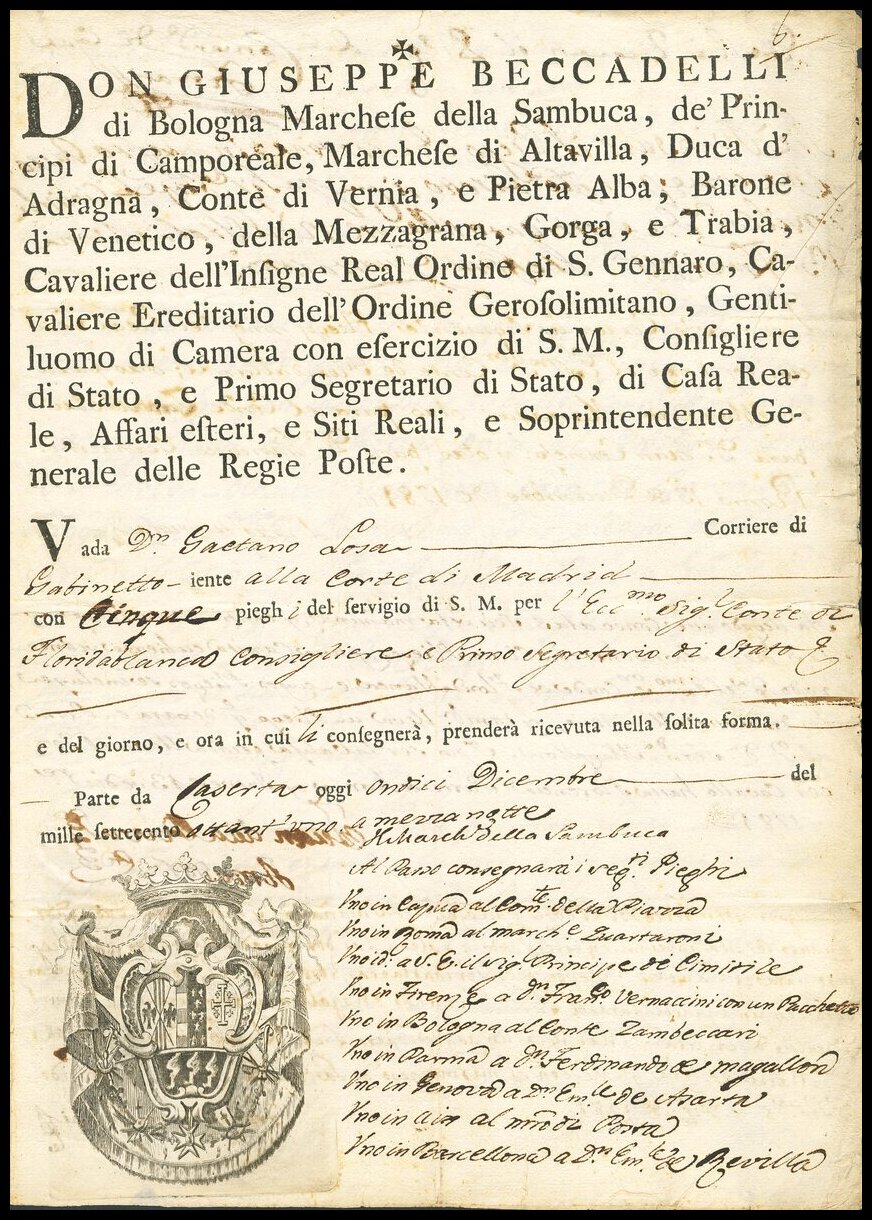 6.
DON GIUSEPPE BECCADELLI
di Bologna Marcheſe della Sambuca, de' Prin-
cipi di Camporeale, Marcheſe di Altavilla, Duca d'
Adragna, Conte di Vernia, e Pietra Alba; Barone
di Venetico, della Mezzagrana, Gorga, e Trabia,
Cavaliere dell'Inſigne Real Ordine di S. Gennaro, Ca-
valiere Ereditario dell'Ordine Geroſolimitano, Genti-
luomo di Camera con eſercizio di S. M., Conſigliere
di Stato, e Primo Segretario di Stato, di Caſa Rea-
le, Affari eſteri, e Siti Reali, e Soprintendente Ge-
nerale delle Regie Poſte.
Vada Dn Gaetano Losa Corriere di
Gabinetto iente alla Corte di Madrid
con Cinque pieghi del ſervigio di S. M. per l'Eccmo Sigr Conte di
Floridablanca Consigliere e Primo Segretario di Stato &
e del giorno, e ora in cui li conſegnerà, prenderà ricevuta nella ſolita forma.
Parte da Caserta oggi Undici Dicembre del
mille ſettecento ottant'uno a mezza notte
Il March della Sambuca
Al Passo consegnarà i segti Pieghi
Uno in Capua al Comte della Piazza
Uno in Roma al marche Quartaroni
Uno id. a S. E. il Sigr Principe de Cimitile
Uno in Firenze a Dn Franco Vernaccini con un Pacchetto
Uno in Bologna al Conte Zambeccari
Uno in Parma a Dn Ferdinando de Magallon
Uno in Genova a Dn Emle de
Uno in Aix al mro di Posta
Uno in Barcellona a Dn Emle de Revilla